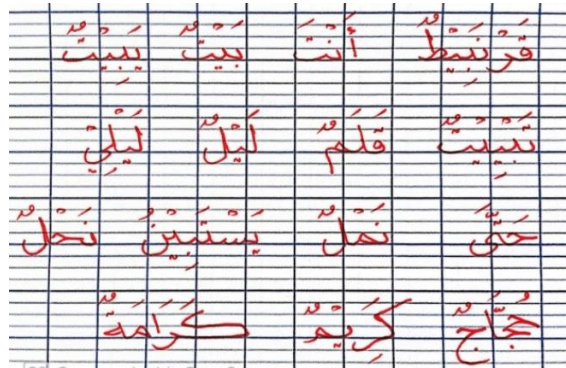 قَرْنَبِيْطٌ أَنْتَ بَيْتٌ يَبِيْتُ
تَبْيِيْتٌ قَلَمٌ لَيْلٌ لَيْلِيْ
حَتَّى نَمْلٌ يَسْتَبِيْنُ نَحْلٌ
حُجَّاجٌ كَرِيْمٌ كَرَامَةٌ